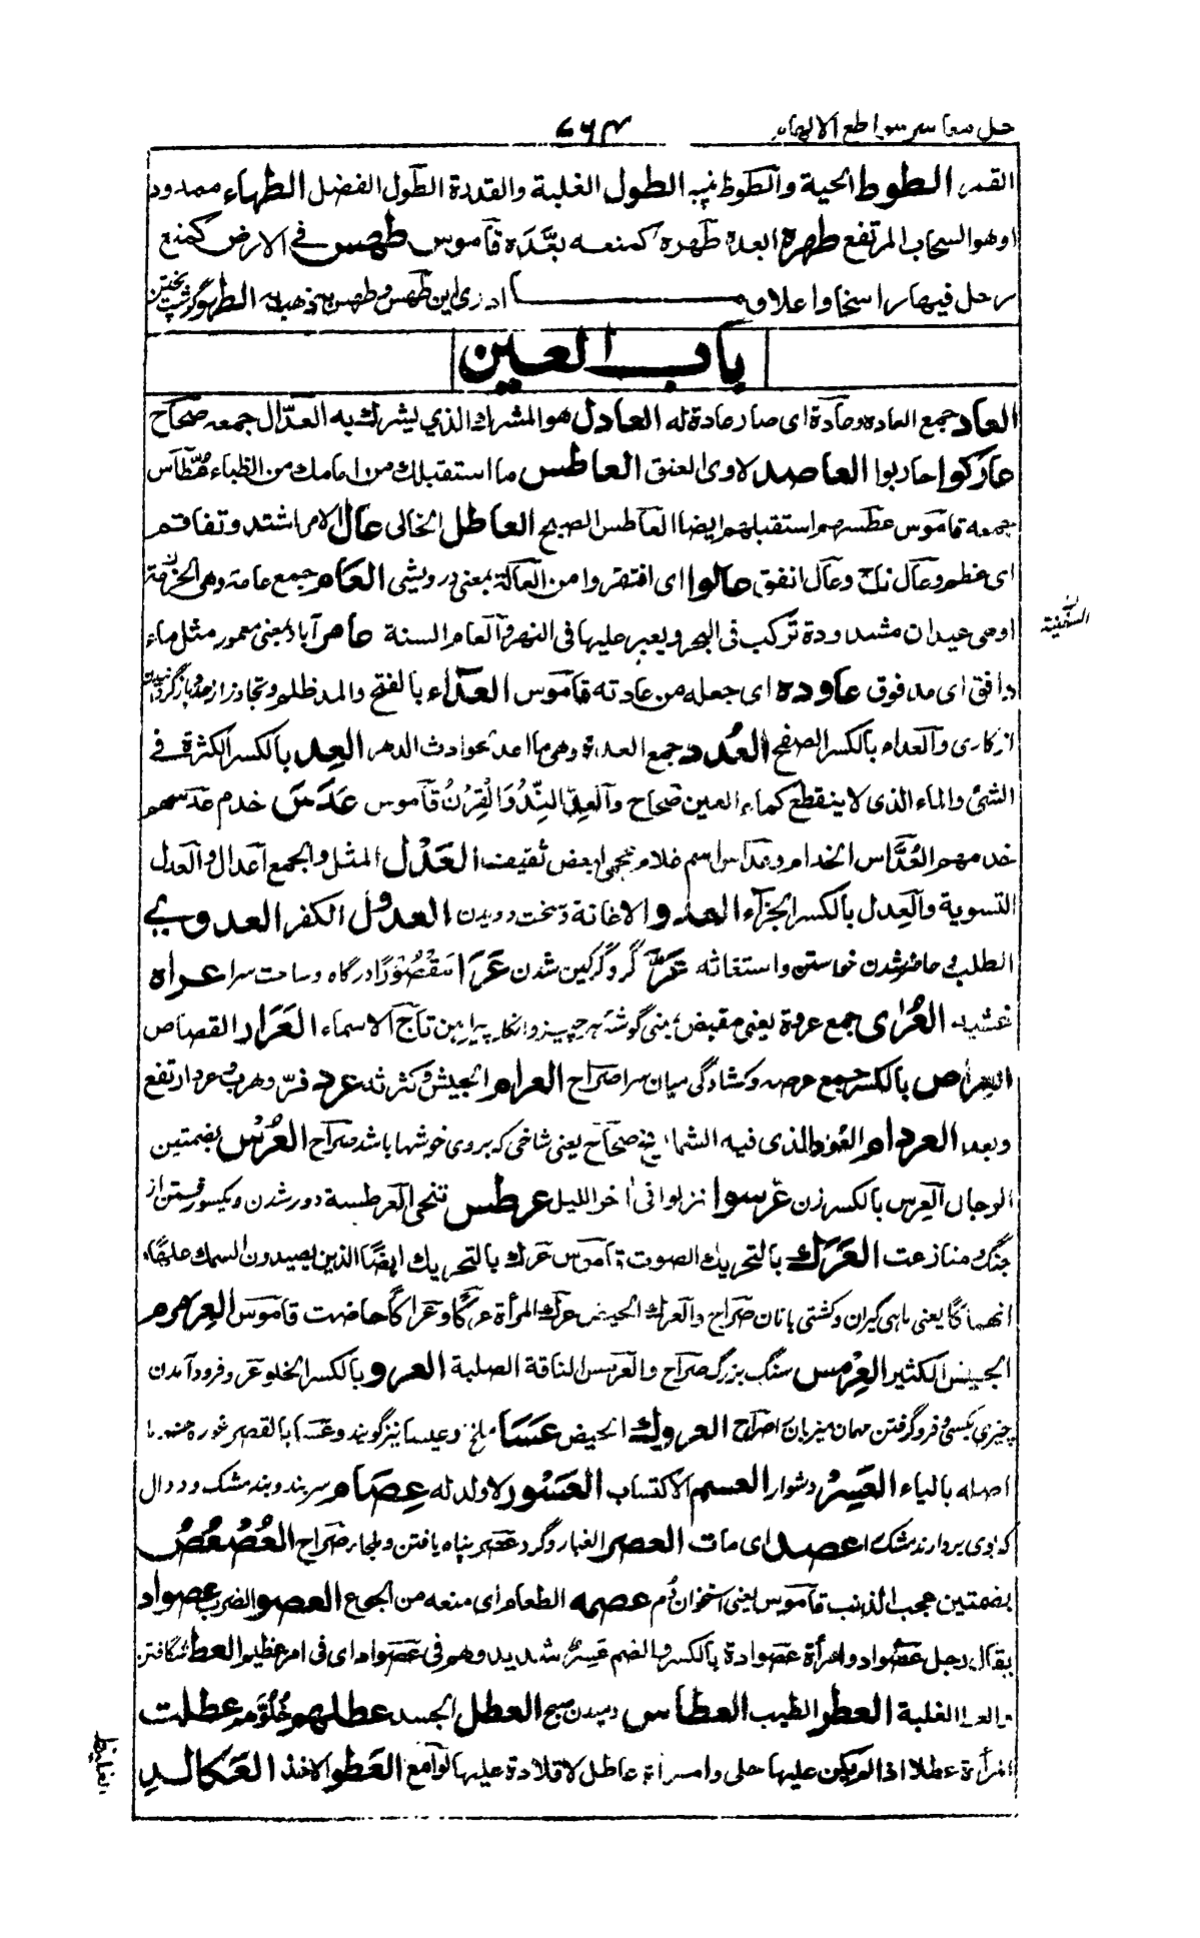 حل معاسر سواطع الالهام ٧٦٣
القمر الطوط الحية والطوط پنبه الطول الغلبة والقدرة الطول الفضل الطهاء ممدود
او هو السحاب المرتفع طهره ابعده طهره كمنعه بعّده قاموس طهس فى الارض كمنع
رجل فيها راسخا واعلاق ادرى اين طهس وطهس به ذهب به الطهو گوشت پختن
باب العين
العاد جمع العادة وعادة اى صار عادة له العادل هو المشرك الذي يشرك به العدّال جمعه صحاح
عاركوا حاربوا العاصد لاوى العنق العاطس ما استقبلك من امامك من الظباء عُطّاس
جمعه قاموس عطسهم استقبلهم ايضا العاطس الصبح العاطل الخالى عال الامر اشتد وتفاقم
اى عظم وعال وعال انفق عالوا اى افتقروا من العالة بمعنى درويشى العام جمع عامة وهى الحزمة
او هى عيدان مشدودة تركب فى البحر ويعبر عليها فى النهر والعام السنة عامر آباد بمعنى معمور مثل ماء
السفينة
دافق اى مدفوق عاوده اى جعله من عادته قاموس العداء بالفتح والمد ظلم وتجاوز از حد
از كارى والعداء بالكسر الصفح العُدد جمع العدة وهى ما اعد لحوادث الدهر العِد بالكسر الكثرة فى
الشئ والماء الذى لا ينقطع كماء العين صحاح والعِدّ النِّدُ والقِرْنُ قاموس عَدَسَ خدم عدسهم
خدمهم العُدَّاس الخدام وعداس اسم غلام العَدْل المثل والجمع اعدال والعدل
التسوية والعِدل بالكسر الجزاء العدو الاغاثة وسخت دويدن العدول الكفر العدوى
الطلب حاضر شدن خواستن واستغاثه عَرّ گر و گرگين شدن عَرَا مَقْصُوْرًا درگاه وساحت سرا عراه
غشيه العُرَى جمع عروة يعنى مقبض گوشه هر چيز پيراهن تاج الاسماء العَرَاد القصاص
العِراص بالكسر جمع عرصه وكشادگى ميان سرا صراح العرام الجيش وكثرته عرد فرّ وهرب وعرد ارتفع
وبعد العردام العُود الذى فيه الشماريخ صحاح يعنى شاخى كه بروى خوشها باشد صراح العُرُس بضمتين
الرجال العِرس بالكسر زن عرسوا نزلوا فى آخر الليل عرطس تنحى العرطسة دور شدن ويكسو رفتن از
جنگ و منازعت العَرَك بالتحريك الصوت قاموس عرك بالتحريك ايضًا الذين يصيدون السمك
يعنى ماهى گيران و كشتى بانان صراح والعرك الحيض عركت المرأة عركًا وعراكًا حاضت قاموس العرمرم
الجيش الكثير العِرْمِس سنگ بزرگ صراح والعرمس الناقة الصلبة العرو بالكسر الخلو عرو فرود آمدن
چيزى بكسى و فرو گرفتن مهمان ميزبان را صراح العروك الحيض عَسَا ملخ وعيسا نيز گويند وعسا بالقصر غوره خرما
اصله بالياء العَسِرُ دشوار العسم الاكتساب العَسُور لا ولد له عِصَام سربند وبند مشك ودوال
كه بوى بردارند مشك را عصد اى مات العصر الغبار وگرد عصر پناه يافتن وملجا صراح العُصْعُصُ
بضمتين عجب الذنب قاموس يعنى استخوان دُم عصمه الطعام اى منعه من الجوع العصو الضرب عصواد
يقال رجل عصواد وامرأة عصوادة بالكسر والضم عَسِرٌ شديد وهم فى عصواد اى فى امر عظيم العط شگافتن
والعط الغلبة العطر الطيب العطاس دميدن صبح العطل الجسد عطلهم خُلوَّهم عطلت
امرأة عطلا اذا لم يكن عليها حلى وامرأة عاطل لا قلادة عليها لوامع العَطو الاخذ العَكالد
الغليظ